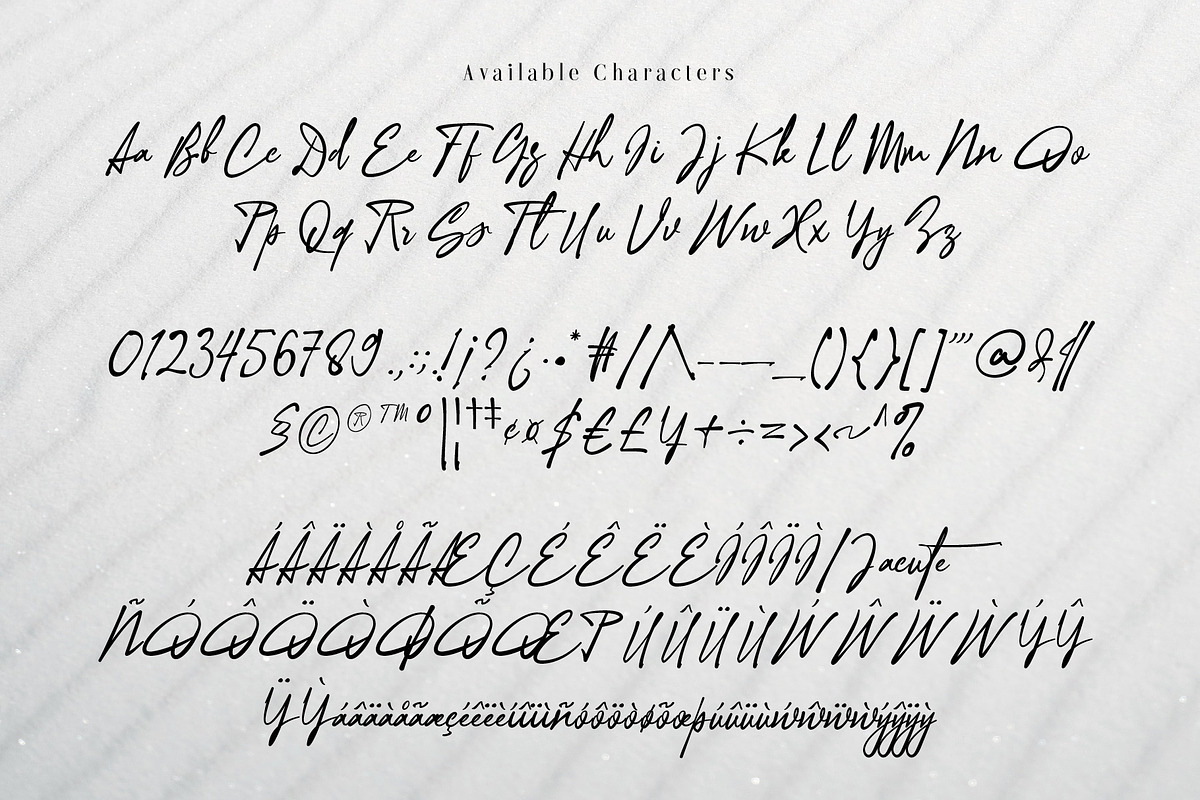 Available Characters
Aa Bb Cc Dd Ee Ff Gg Hh Ii Jj Kk Ll Mm Nn Oo
Pp Qq Rr Ss Tt Uu Vv Ww Xx Yy Zz
0123456789.,:;…!¡?¿·•*#/\-–—_(){}[]‚"'@&¶
§©®™°|¦†‡¢¤$€£¥+÷=><~^%
ÁÂÄÀÅÃÆÇÉÊËÈÍÎÏÌ/Jacute
ÑÓÔÖÒØÕŒÞÚÛÜÙẂŴẄẀÝŶ
ŸỲáâäàåãæçéêëèíîïìñóôöòøõœþúûüùẃŵẅẁýŷÿỳ